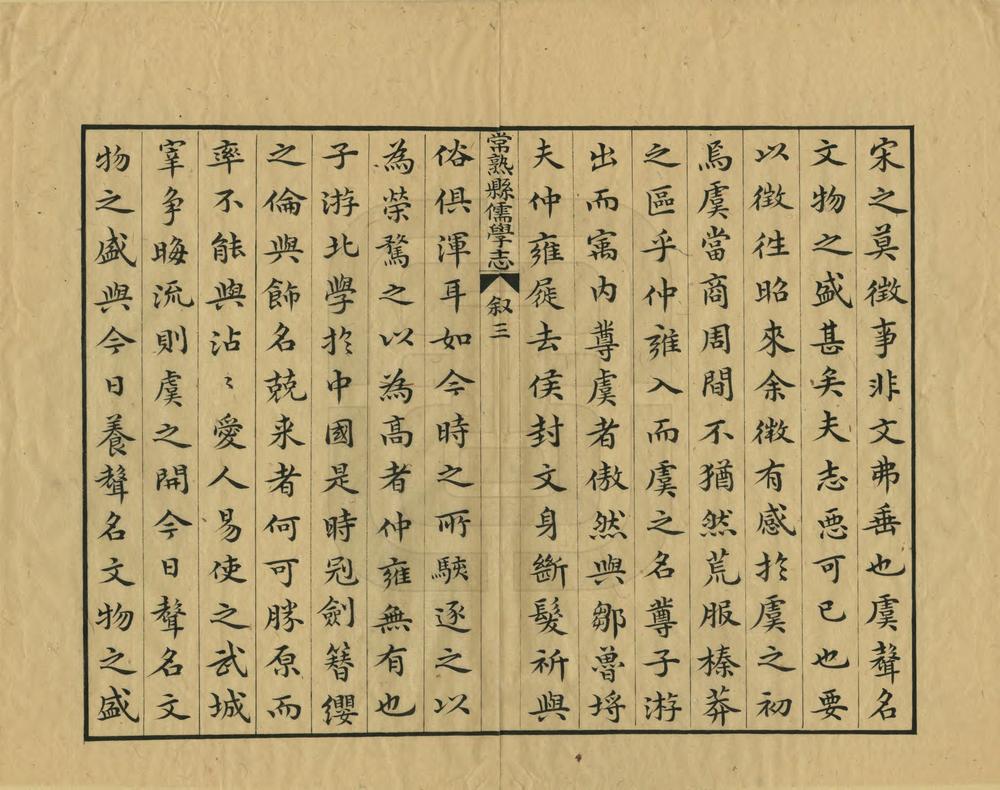 宋之莫徵事非文弗垂也虞聲名
文物之盛甚矣夫志惡可已也要
以徵徃昭來余徵有感扵虞之初
焉虞當商周間不猶然荒服榛莽
之區乎仲雍入而虞之名尊子游
出而寓内尊虞者傲然與鄒魯埒
夫仲雍屣去侯封文身斷髮祈與
常熟縣儒學志 叙三
俗俱渾耳如今時之所騻逐之以
為榮騖之以為高者仲雍無有也
子游北學扵中國是時冠劍簪纓
之倫與飾名兢来者何可勝原而
率不能與沾〻愛人易使之武城
宰争晦流則虞之開今日聲名文
物之盛與今日養聲名文物之盛